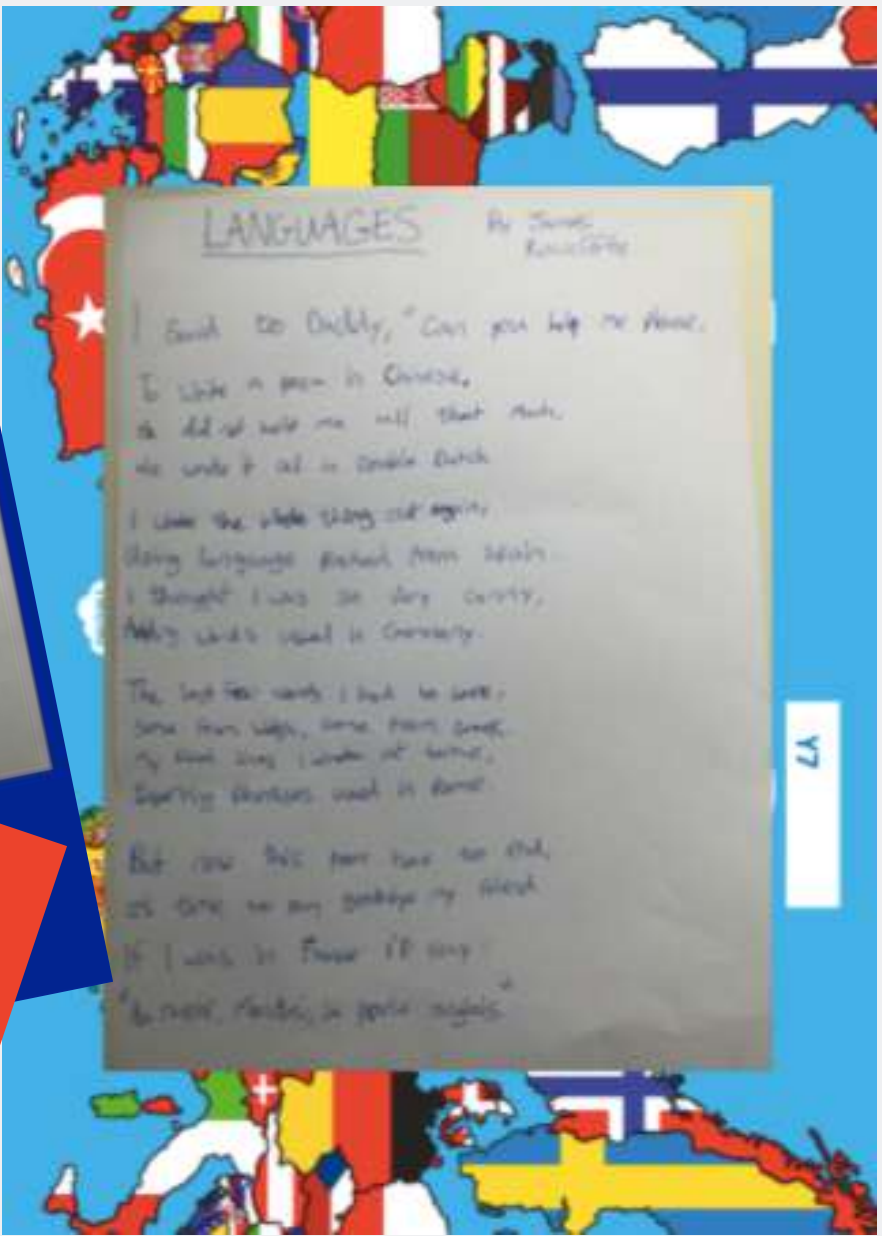 LANGUAGES
By James
I said to Daddy, "Can you help me please,
To write a poem in Chinese,
He did not help me all that much,
He wrote it all in Double Dutch
I wrote the whole thing out again,
Using language from Spain
I thought I was so very
Adding words used in Germany.
The last few words I had to
Some from Wales, some from Greek
My final lines I wrote at home,
phrases used in Rome
But now this poem has to end,
It's time to say goodbye my friend
If I was in France I'd say
parle anglais"
Y7